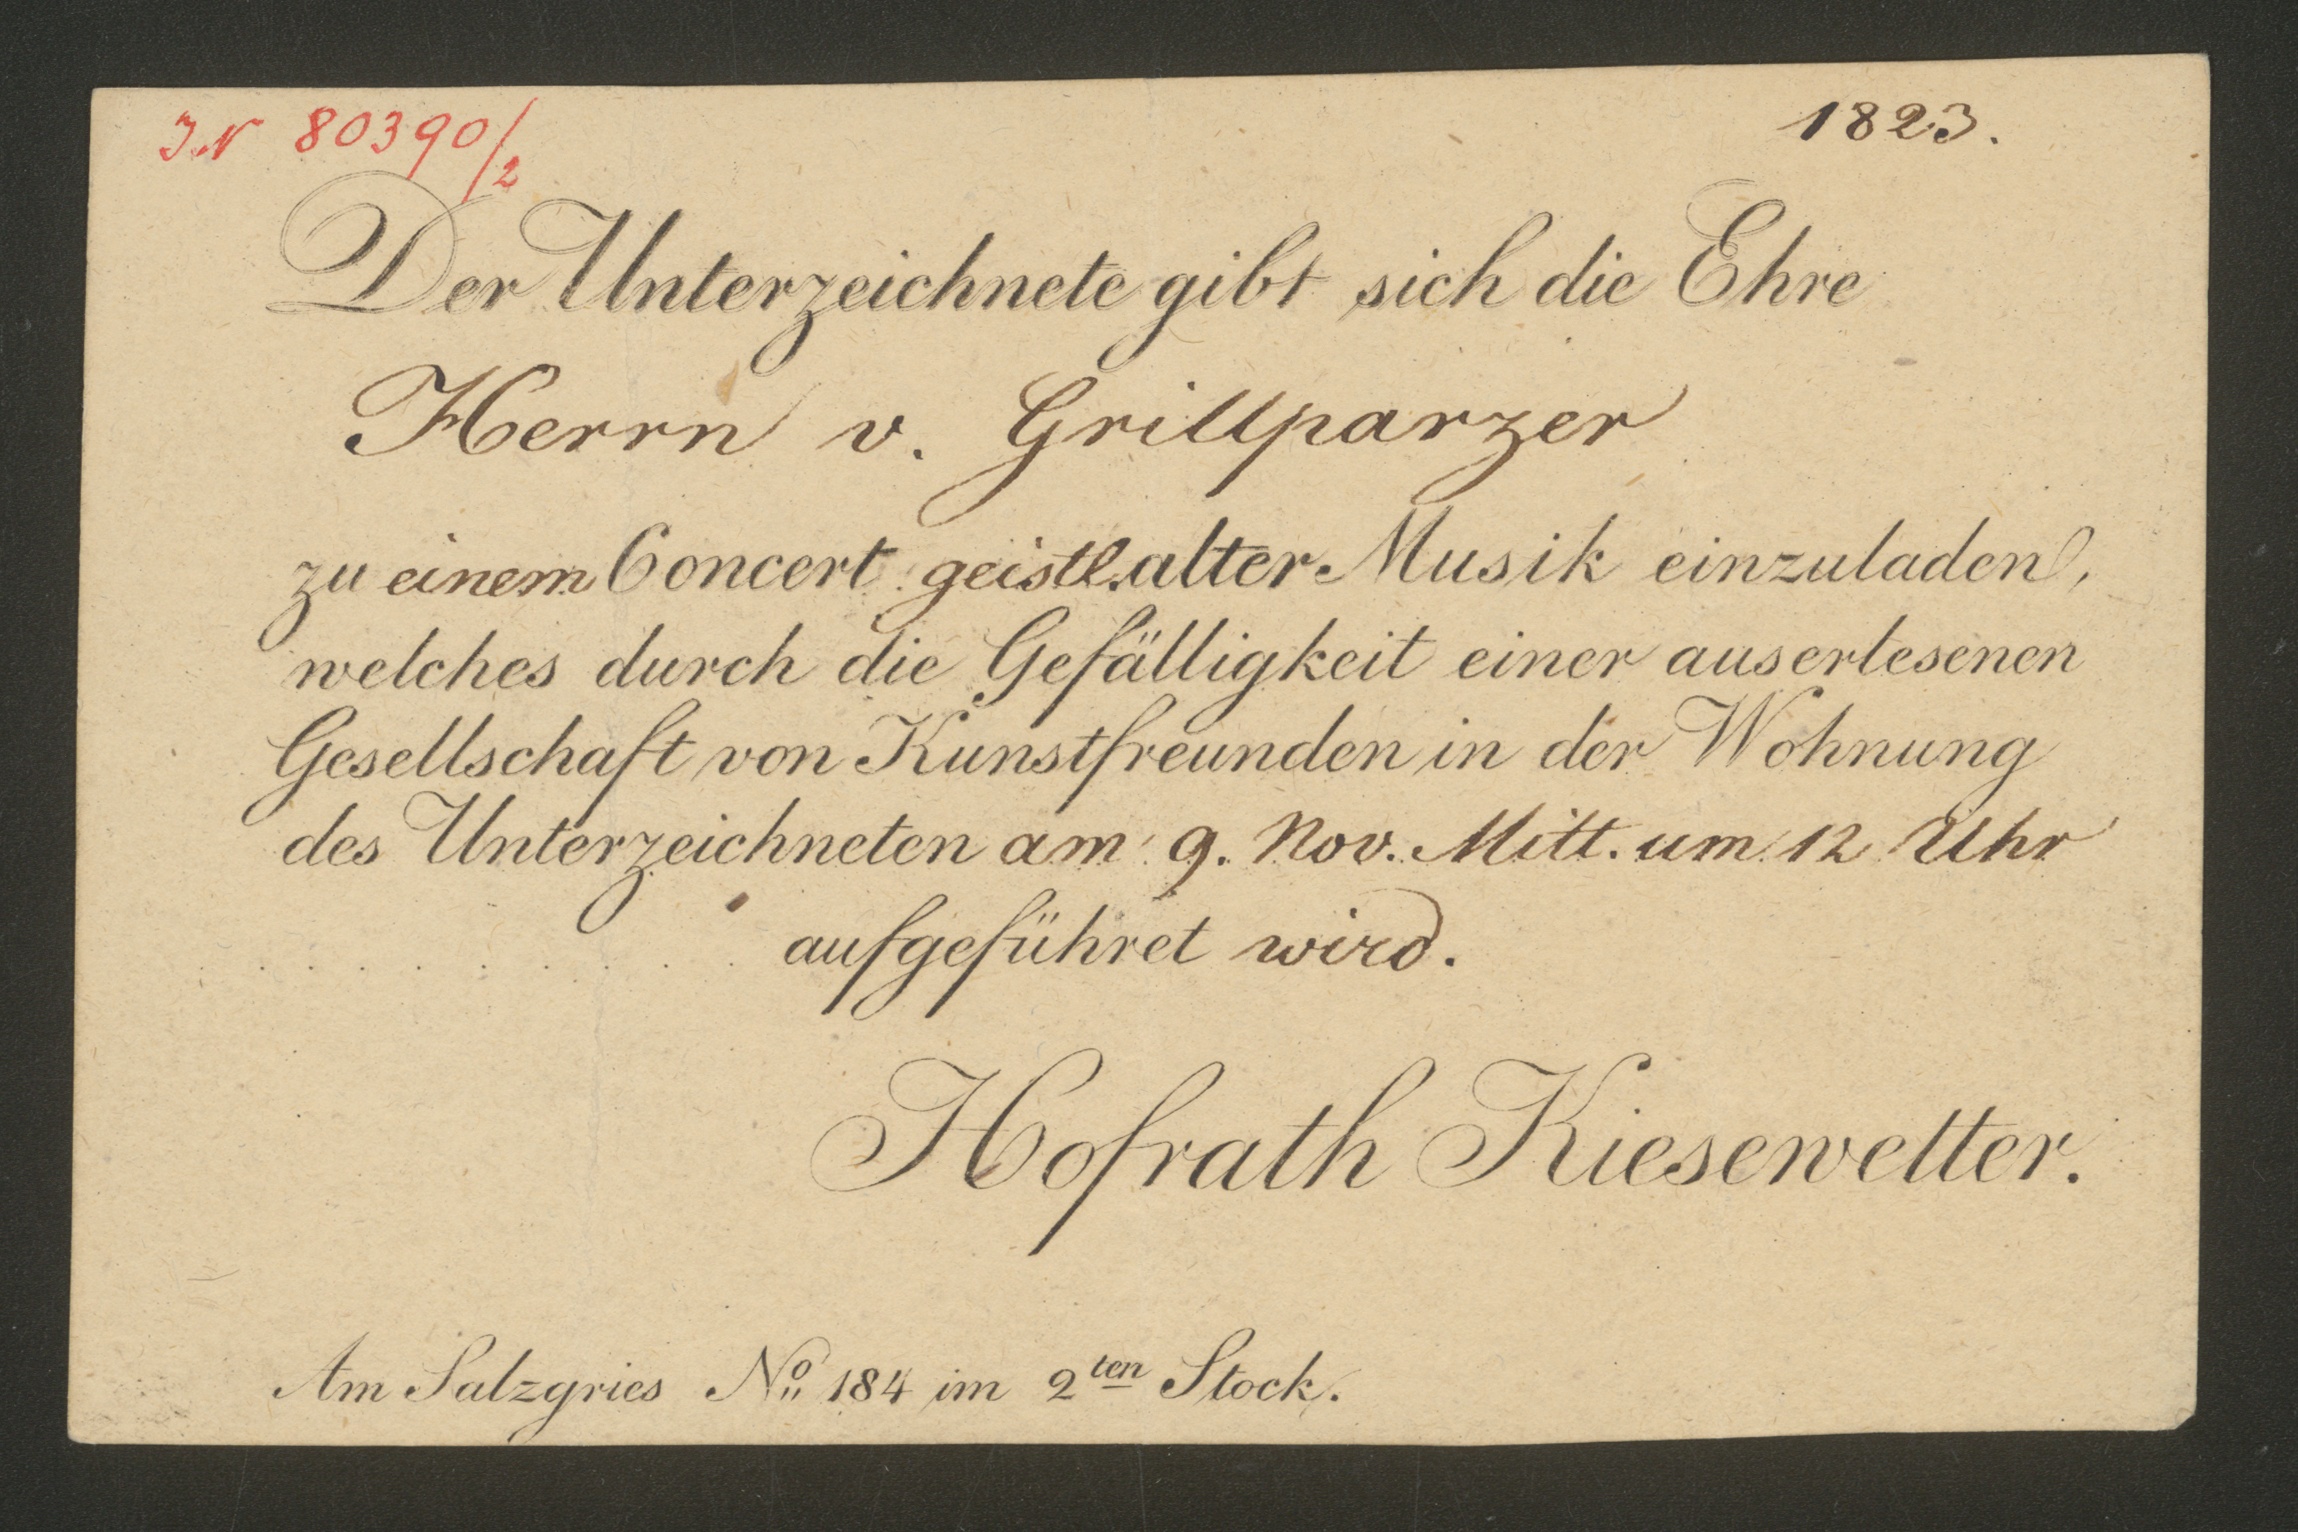 IN 80390/2
1823.
Der Unterzeichnete gibt sich die Ehre
Herrn v. Grillparzer
zu einem Concert geistl. alter Musik einzuladen,
welches durch die Gefälligkeit einer auserlesenen
Gesellschaft von Kunstfreunden in der Wohnung
des Unterzeichneten am 9. Nov. Mitt. um 12 Uhr
aufgeführet wird.
Hofrath Kiesewetter.
Am Salzgries No. 184 im 2ten Stock.